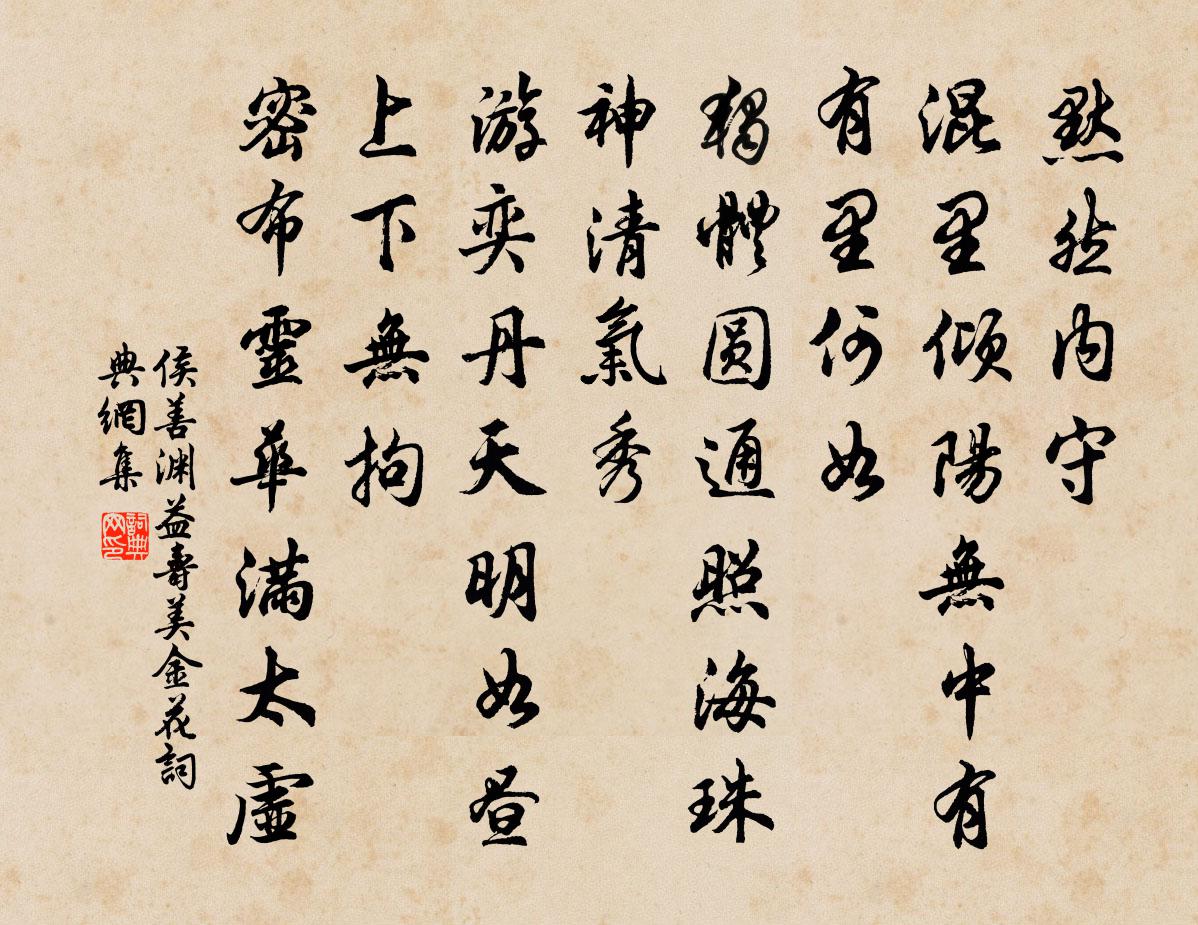 默然内守
混里傾陽無中有
有里何如
獨體圆通照海珠
神清氣秀
游奕丹天明如昼
上下無拘
密布靈華滿太虛
侯善渊益壽美金花詞
典網集
詞典网印